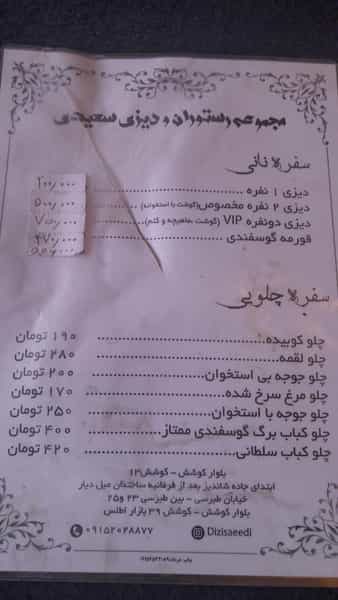 مجموعه رستوران و دیزی سعیدی
سفره نانی
دیزی ۱ نفره ........................ ۲۰۰/۰۰۰
دیزی ۲ نفره مخصوص(گوشت با استخوان) ........ ۵۰۰/۰۰۰
دیزی دونفره VIP (گوشت ماهیچه و کتم)........ ۷۰۰/۰۰۰
قورمه گوسفندی ........................ ۴۷۰/۰۰۰
سفره چلویی
چلو کوبیده........................ ۱۹۰ تومان
چلو لقمه........................ ۲۸۰ تومان
چلو جوجه بی استخوان........................ ۲۰۰ تومان
چلو مرغ سرخ شده........................ ۱۷۰ تومان
چلو جوجه با استخوان........................ ۲۵۰ تومان
چلو کباب برگ گوسفندی ممتاز............... ۴۰۰ تومان
چلو کباب سلطانی........................ ۴۲۰ تومان
بلوار کوشش - کوشش۱۳
ابتدای جاده شاندیز بعد از فرقانیه ساختمان میل دیار
خیابان طبرسی - بین طبرسی ۲۳ و۲۵
بلوار کوشش - کوشش ۳۹ بازار اطلس
۰۹۱۵۲۰۲۸۸۷۷ Dizisaeedi